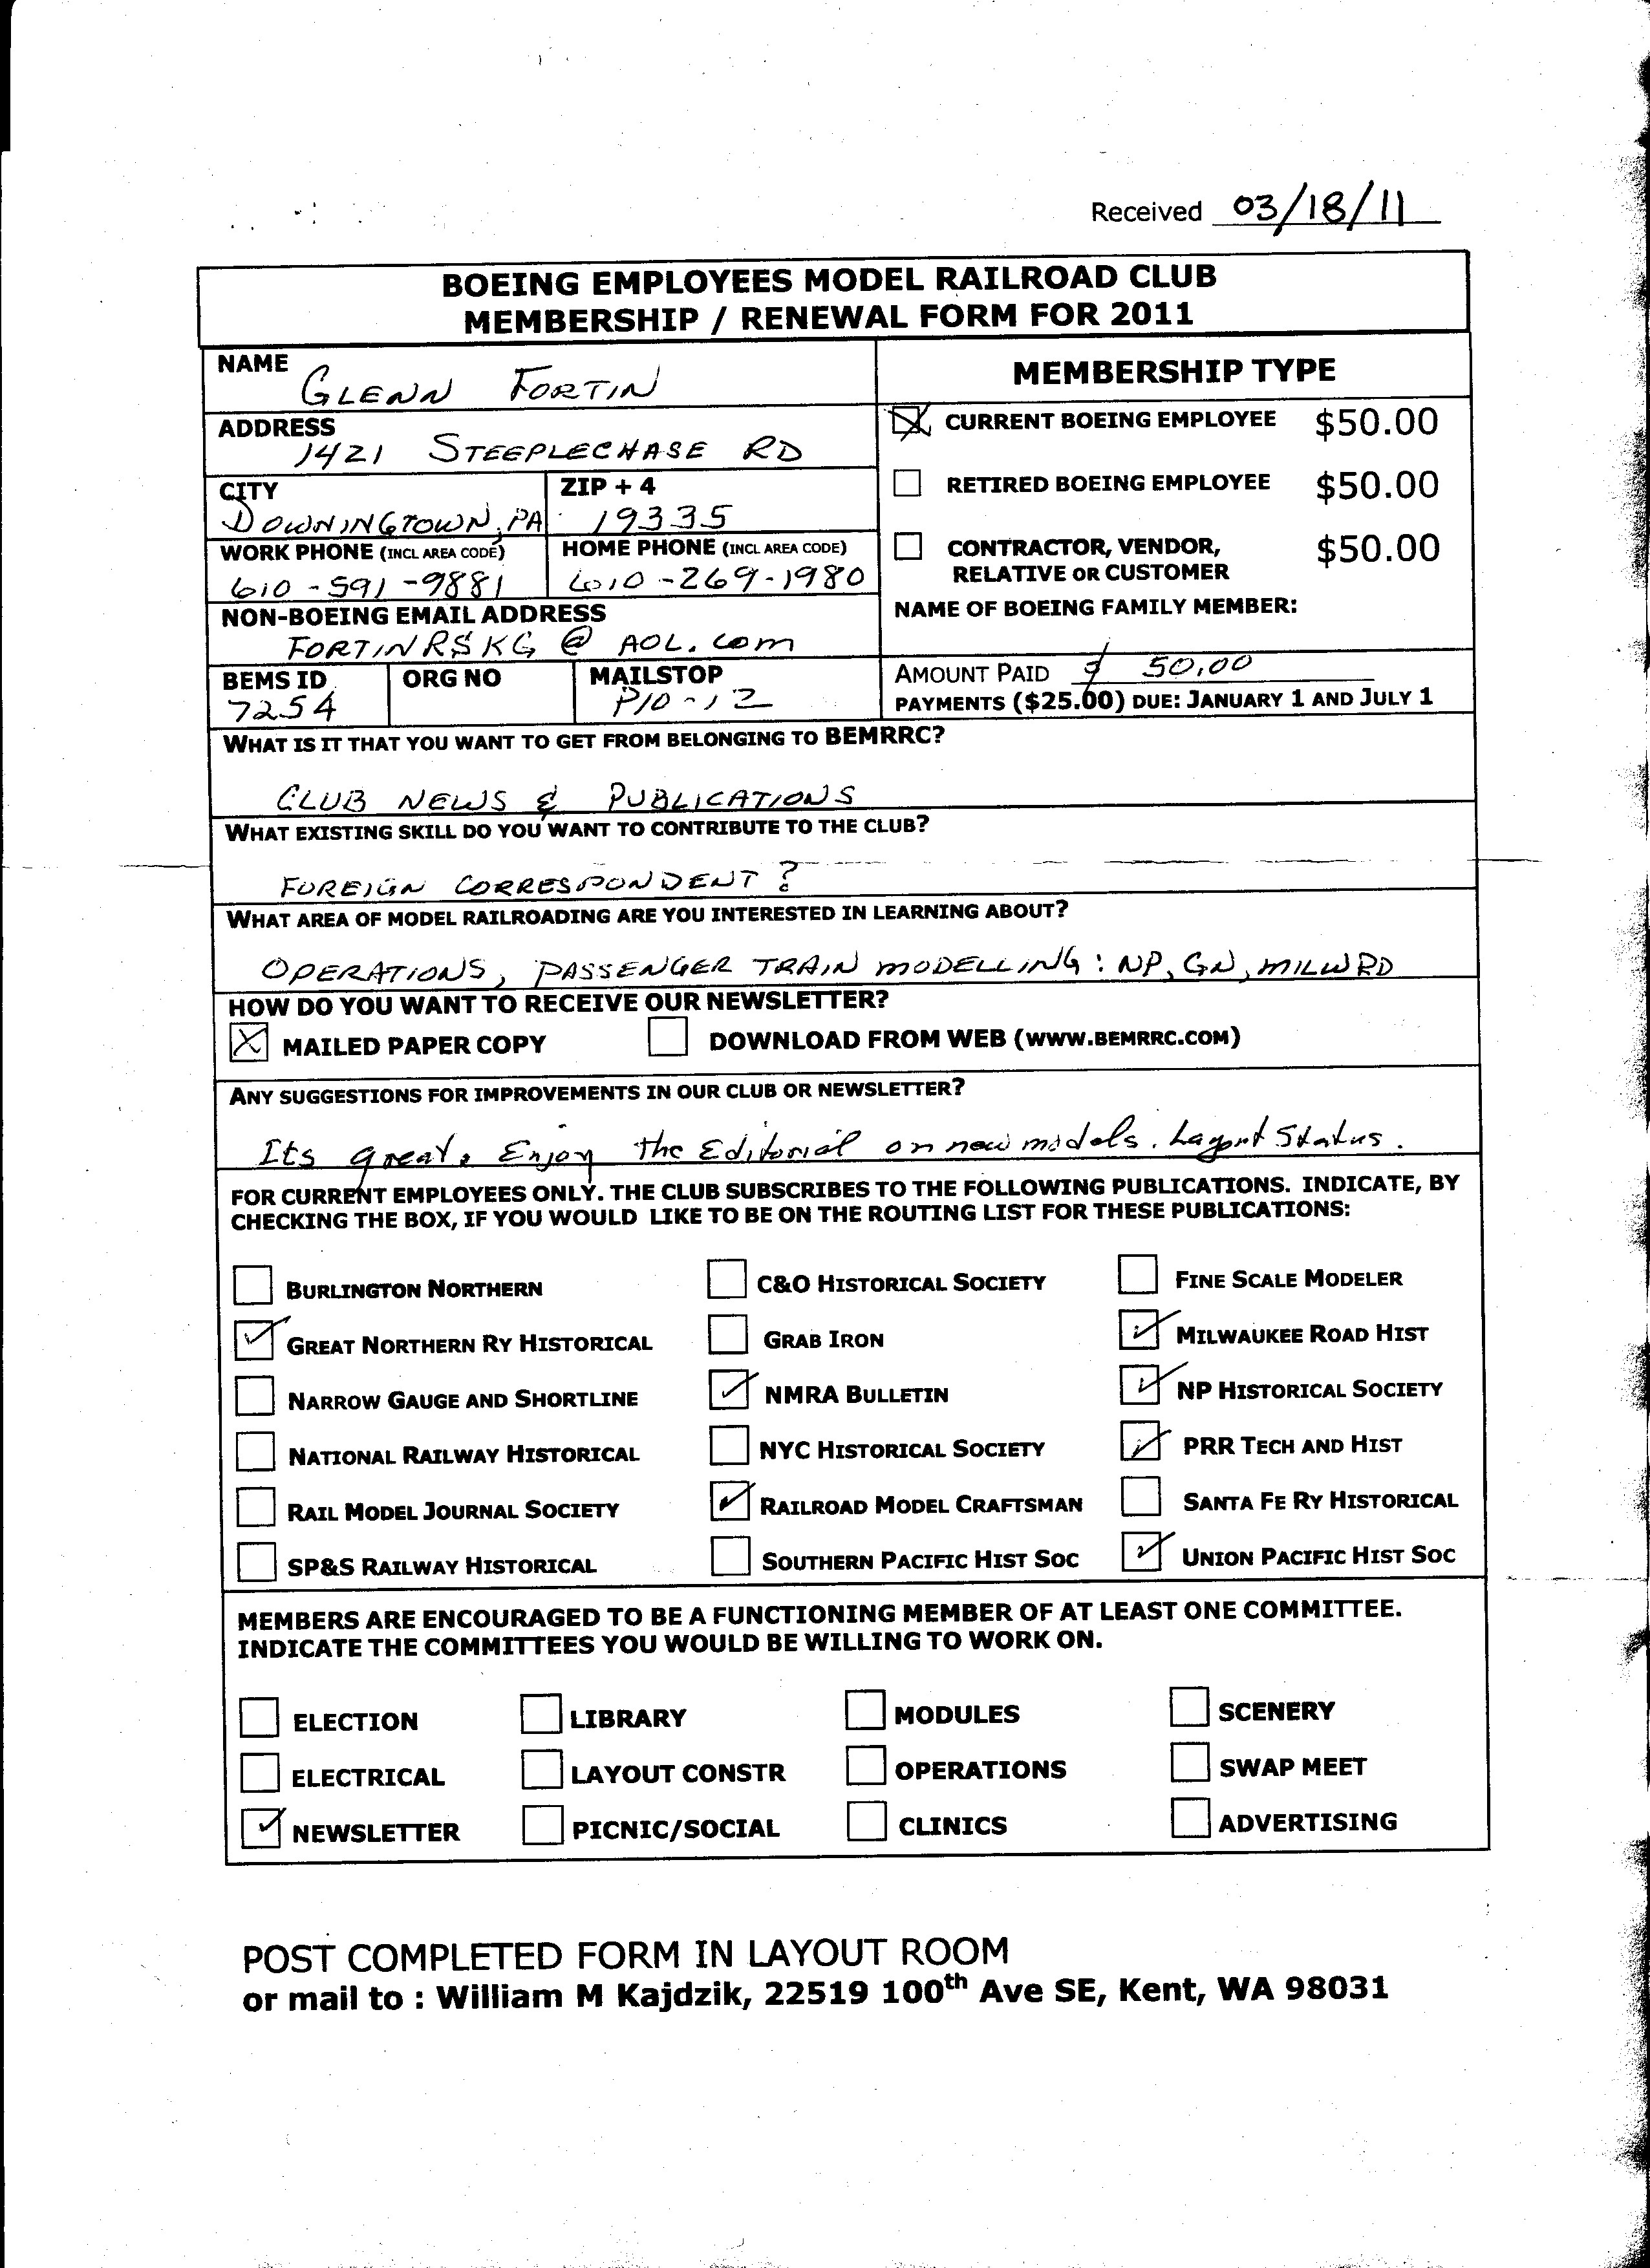 Received 03/18/11
BOEING EMPLOYEES MODEL RAILROAD CLUB
MEMBERSHIP / RENEWAL FORM FOR 2011
NAME
GLENN FORTIN
MEMBERSHIP TYPE
ADDRESS
1421 STEEPLECHASE RD
☒ CURRENT BOEING EMPLOYEE $50.00
CITY ZIP + 4
DOWNINGTOWN, PA 19335
☐ RETIRED BOEING EMPLOYEE $50.00
WORK PHONE (INCL AREA CODE) HOME PHONE (INCL AREA CODE)
610-591-9881 610-269-1980
☐ CONTRACTOR, VENDOR, $50.00
RELATIVE OR CUSTOMER
NON-BOEING EMAIL ADDRESS
FORTINRSKG @ AOL.com
NAME OF BOEING FAMILY MEMBER:
BEMS ID ORG NO MAILSTOP
7254 P10-12
AMOUNT PAID $ 50.00
PAYMENTS ($25.00) DUE: JANUARY 1 AND JULY 1
WHAT IS IT THAT YOU WANT TO GET FROM BELONGING TO BEMRRC?
CLUB NEWS & PUBLICATIONS
WHAT EXISTING SKILL DO YOU WANT TO CONTRIBUTE TO THE CLUB?
FOREIGN CORRESPONDENT ?
WHAT AREA OF MODEL RAILROADING ARE YOU INTERESTED IN LEARNING ABOUT?
OPERATIONS, PASSENGER TRAIN MODELLING : NP, GN, MILWRD
HOW DO YOU WANT TO RECEIVE OUR NEWSLETTER?
☒ MAILED PAPER COPY ☐ DOWNLOAD FROM WEB (WWW.BEMRRC.COM)
ANY SUGGESTIONS FOR IMPROVEMENTS IN OUR CLUB OR NEWSLETTER?
Its great. Enjoy the Editorial on new models. Layout Status.
FOR CURRENT EMPLOYEES ONLY. THE CLUB SUBSCRIBES TO THE FOLLOWING PUBLICATIONS. INDICATE, BY
CHECKING THE BOX, IF YOU WOULD LIKE TO BE ON THE ROUTING LIST FOR THESE PUBLICATIONS:
☐ BURLINGTON NORTHERN ☐ C&O HISTORICAL SOCIETY ☐ FINE SCALE MODELER
☑ GREAT NORTHERN RY HISTORICAL ☐ GRAB IRON ☑ MILWAUKEE ROAD HIST
☐ NARROW GAUGE AND SHORTLINE ☑ NMRA BULLETIN ☑ NP HISTORICAL SOCIETY
☐ NATIONAL RAILWAY HISTORICAL ☐ NYC HISTORICAL SOCIETY ☑ PRR TECH AND HIST
☐ RAIL MODEL JOURNAL SOCIETY ☑ RAILROAD MODEL CRAFTSMAN ☐ SANTA FE RY HISTORICAL
☐ SP&S RAILWAY HISTORICAL ☐ SOUTHERN PACIFIC HIST SOC ☑ UNION PACIFIC HIST SOC
MEMBERS ARE ENCOURAGED TO BE A FUNCTIONING MEMBER OF AT LEAST ONE COMMITTEE.
INDICATE THE COMMITTEES YOU WOULD BE WILLING TO WORK ON.
☐ ELECTION ☐ LIBRARY ☐ MODULES ☐ SCENERY
☐ ELECTRICAL ☐ LAYOUT CONSTR ☐ OPERATIONS ☐ SWAP MEET
☑ NEWSLETTER ☐ PICNIC/SOCIAL ☐ CLINICS ☐ ADVERTISING
POST COMPLETED FORM IN LAYOUT ROOM
or mail to : William M Kajdzik, 22519 100th Ave SE, Kent, WA 98031